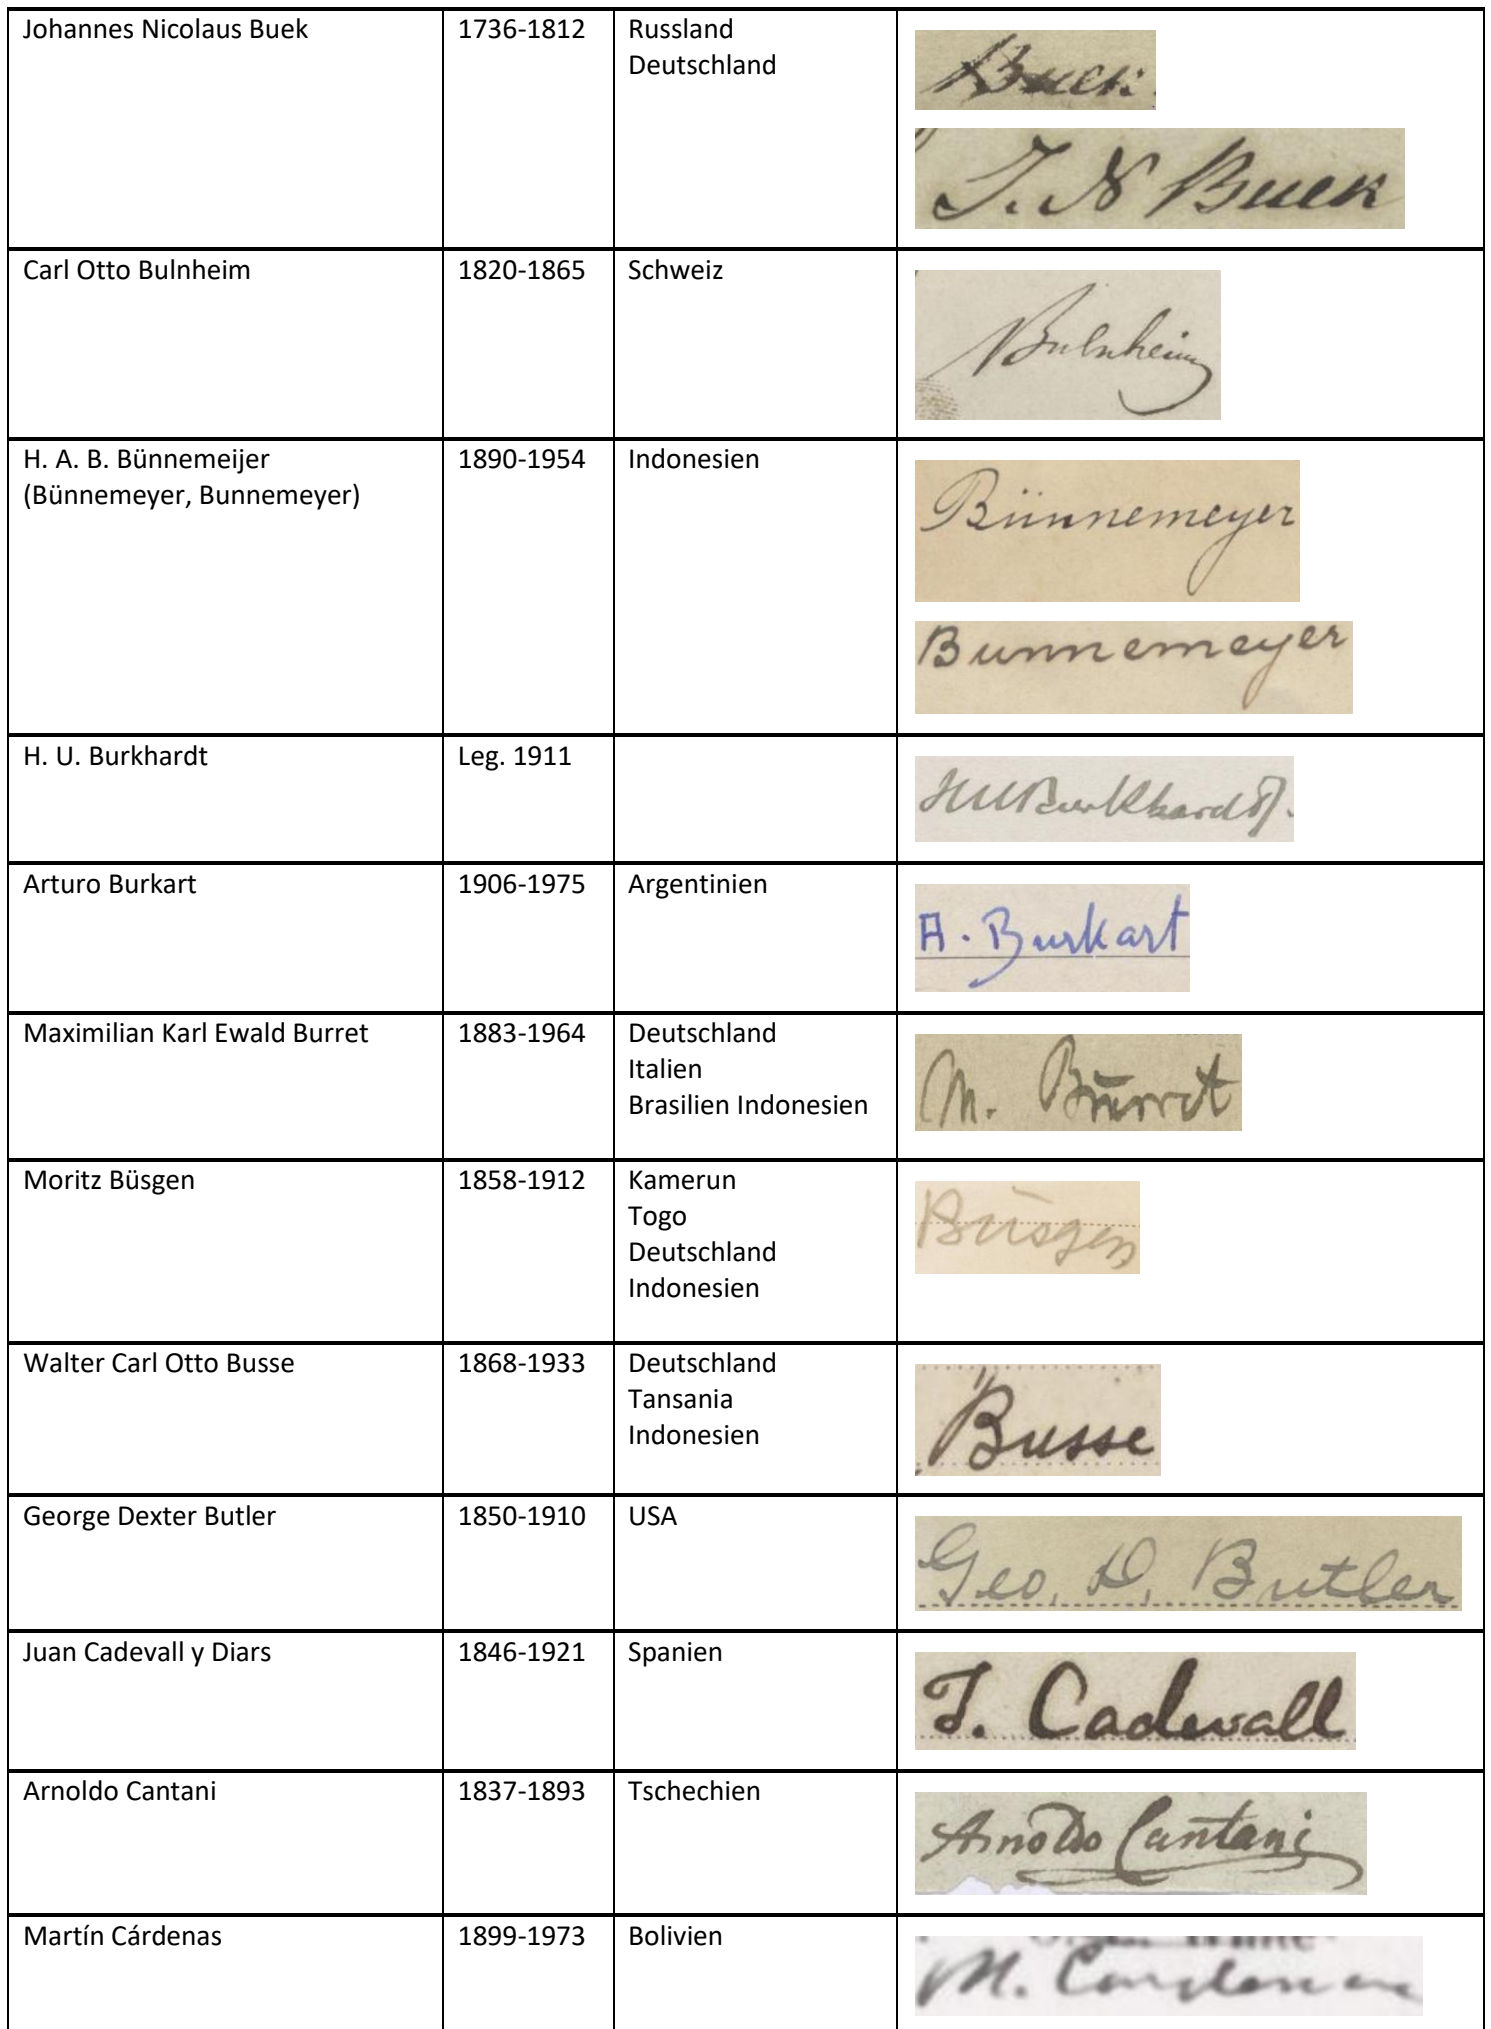 Johannes Nicolaus Buek 1736-1812 Russland
Deutschland
Buek.
J. N Buek
Carl Otto Bulnheim 1820-1865 Schweiz
Bulnheim
H. A. B. Bünnemeijer 1890-1954 Indonesien
(Bünnemeyer, Bunnemeyer)
Bünnemeyer
Bunnemeyer
H. U. Burkhardt Leg. 1911
HUBurkhardt.
Arturo Burkart 1906-1975 Argentinien
A. Burkart
Maximilian Karl Ewald Burret 1883-1964 Deutschland
Italien
Brasilien Indonesien
M. Burret
Moritz Büsgen 1858-1912 Kamerun
Togo
Deutschland
Indonesien
Büsgen
Walter Carl Otto Busse 1868-1933 Deutschland
Tansania
Indonesien
Busse
George Dexter Butler 1850-1910 USA
Geo. D. Butler
Juan Cadevall y Diars 1846-1921 Spanien
J. Cadevall
Arnoldo Cantani 1837-1893 Tschechien
Arnoldo Cantani
Martín Cárdenas 1899-1973 Bolivien
M. Cardenas